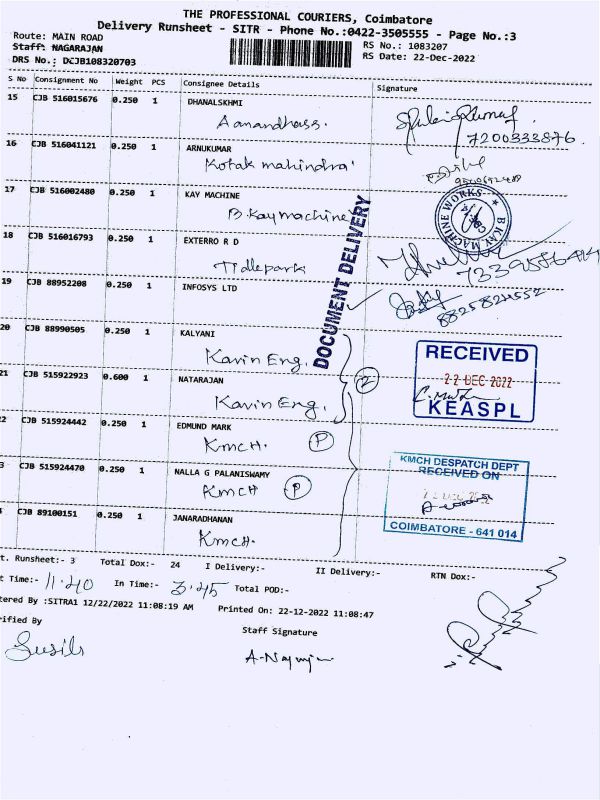 THE PROFESSIONAL COURIERS, Coimbatore
Delivery Runsheet - SITR - Phone No.:0422-3505555 - Page No.:3
Route: MAIN ROAD
Staff: NAGARAJAN
RS No.: 1083207
DRS No.: DCJB108320703
RS Date: 22-Dec-2022
S No Consignment No Weight PCS Consignee Details Signature
15 CJB 516015676 0.250 1 DHANALSKHMI
Aanandhass.
7200333876.
16 CJB 516041121 0.250 1 ARNUKUMAR
Kotak mahindra
17 CJB 516002480 0.250 1 KAY MACHINE
B.Kay machine
B KAY MACHINE WORKS
18 CJB 516016793 0.250 1 EXTERRO R D
Tidlepark
19 CJB 88952208 0.250 1 INFOSYS LTD
8825824552
DOCUMENT DELIVERY
20 CJB 88990505 0.250 1 KALYANI
Kavin Eng.
RECEIVED
22 DEC 2022
KEASPL
21 CJB 515922923 0.600 1 NATARAJAN
Kavin Eng.
2
2 CJB 515924442 0.250 1 EDMUND MARK
KMCH. P
3 CJB 515924470 0.250 1 NALLA G PALANISWAMY
KMCH P
KMCH DESPATCH DEPT
RECEIVED ON
COIMBATORE - 641 014
CJB 89100151 0.250 1 JANARADHANAN
KMCH.
t. Runsheet:- 3 Total Dox:- 24 I Delivery:- II Delivery:- RTN Dox:-
t Time:- 11.40 In Time:- 3.45 Total POD:-
tered By :SITRA1 12/22/2022 11:08:19 AM Printed On: 22-12-2022 11:08:47
rified By Staff Signature